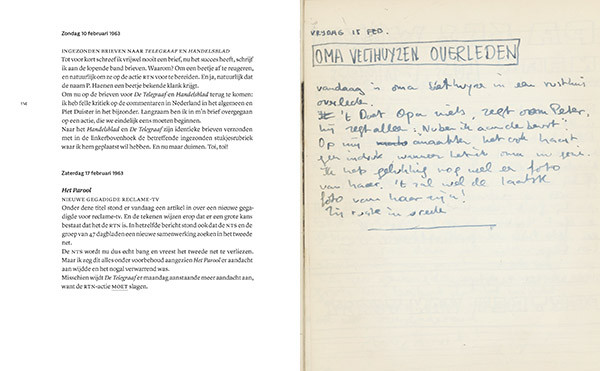 Zondag 10 februari 1963
INGEZONDEN BRIEVEN NAAR TELEGRAAF EN HANDELSBLAD
Tot voor kort schreef ik vrijwel nooit een brief, nu het succes heeft, schrijf
ik aan de lopende band brieven. Waarom? Om een beetje af te reageren,
en natuurlijk om ze op de actie RTN voor te bereiden. En ja, natuurlijk dat
de naam P. Haenen een beetje bekende klank krijgt.
Om nu op de brieven voor De Telegraaf en Handelsblad terug te komen:
ik heb felle kritiek op de commentaren in Nederland in het algemeen en
Piet Duister in het bijzonder. Langzaam ben ik in m'n brief overgegaan
op een actie, die we eindelijk eens moeten beginnen.
Naar het Handelsblad en De Telegraaf zijn identieke brieven verzonden
met in de linkerbovenhoek de betreffende ingezonden stukjesrubriek
waar ik hem geplaatst wil hebben. En nu maar duimen. Toi, toi!
114
Zaterdag 17 februari 1963
Het Parool
NIEUWE GEGADIGDE RECLAME-TV
Onder deze titel stond er vandaag een artikel in over een nieuwe gega-
digde voor reclame-tv. En de tekenen wijzen erop dat er een grote kans
bestaat dat het de RTN is. In hetzelfde bericht stond ook dat de NTS en de
groep van 47 dagbladen een nieuwe samenwerking zoeken in het tweede
net.
De NTS wordt nu dus echt bang en vreest het tweede net te verliezen.
Maar ik zeg dit alles onder voorbehoud aangezien Het Parool er aandacht
aan wijdde en het nogal verwarrend was.
Misschien wijdt De Telegraaf er maandag aanstaande meer aandacht aan,
want de RTN-actie MOET slagen.
VRIJDAG 15 FEB.
OMA VELTHUYZEN OVERLEDEN
vandaag is oma Velthuyzen in een rusthuis
overleden.
't Doet Opa niets, zegt oom Peter,
hij zegt alleen: Nu ben ik aan de beurt".
Op mij maakte het ook haast
geen indruk
Ik heb gelukkig nog wel er foto
van haar. 't zal wel de laatste
foto van haar zijn!
Zij ruste in vrede